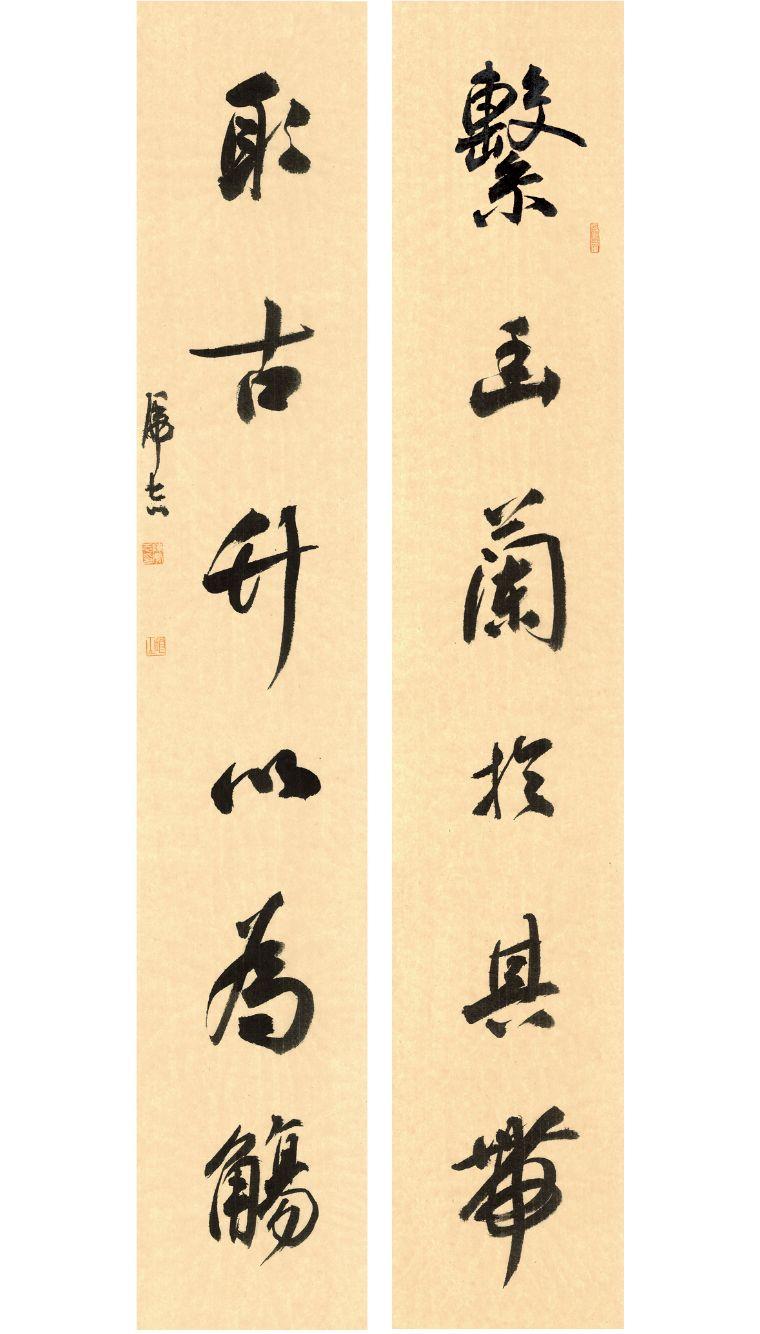 繫幽蘭於其帶
取古升以為觴